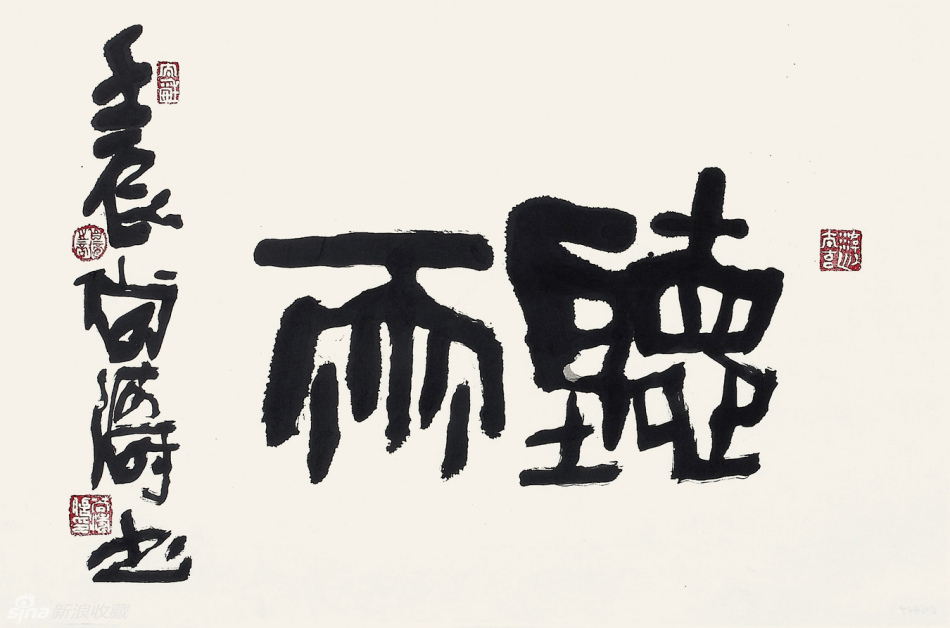 聽雨
壬辰尚濤書
sina 新浪收藏